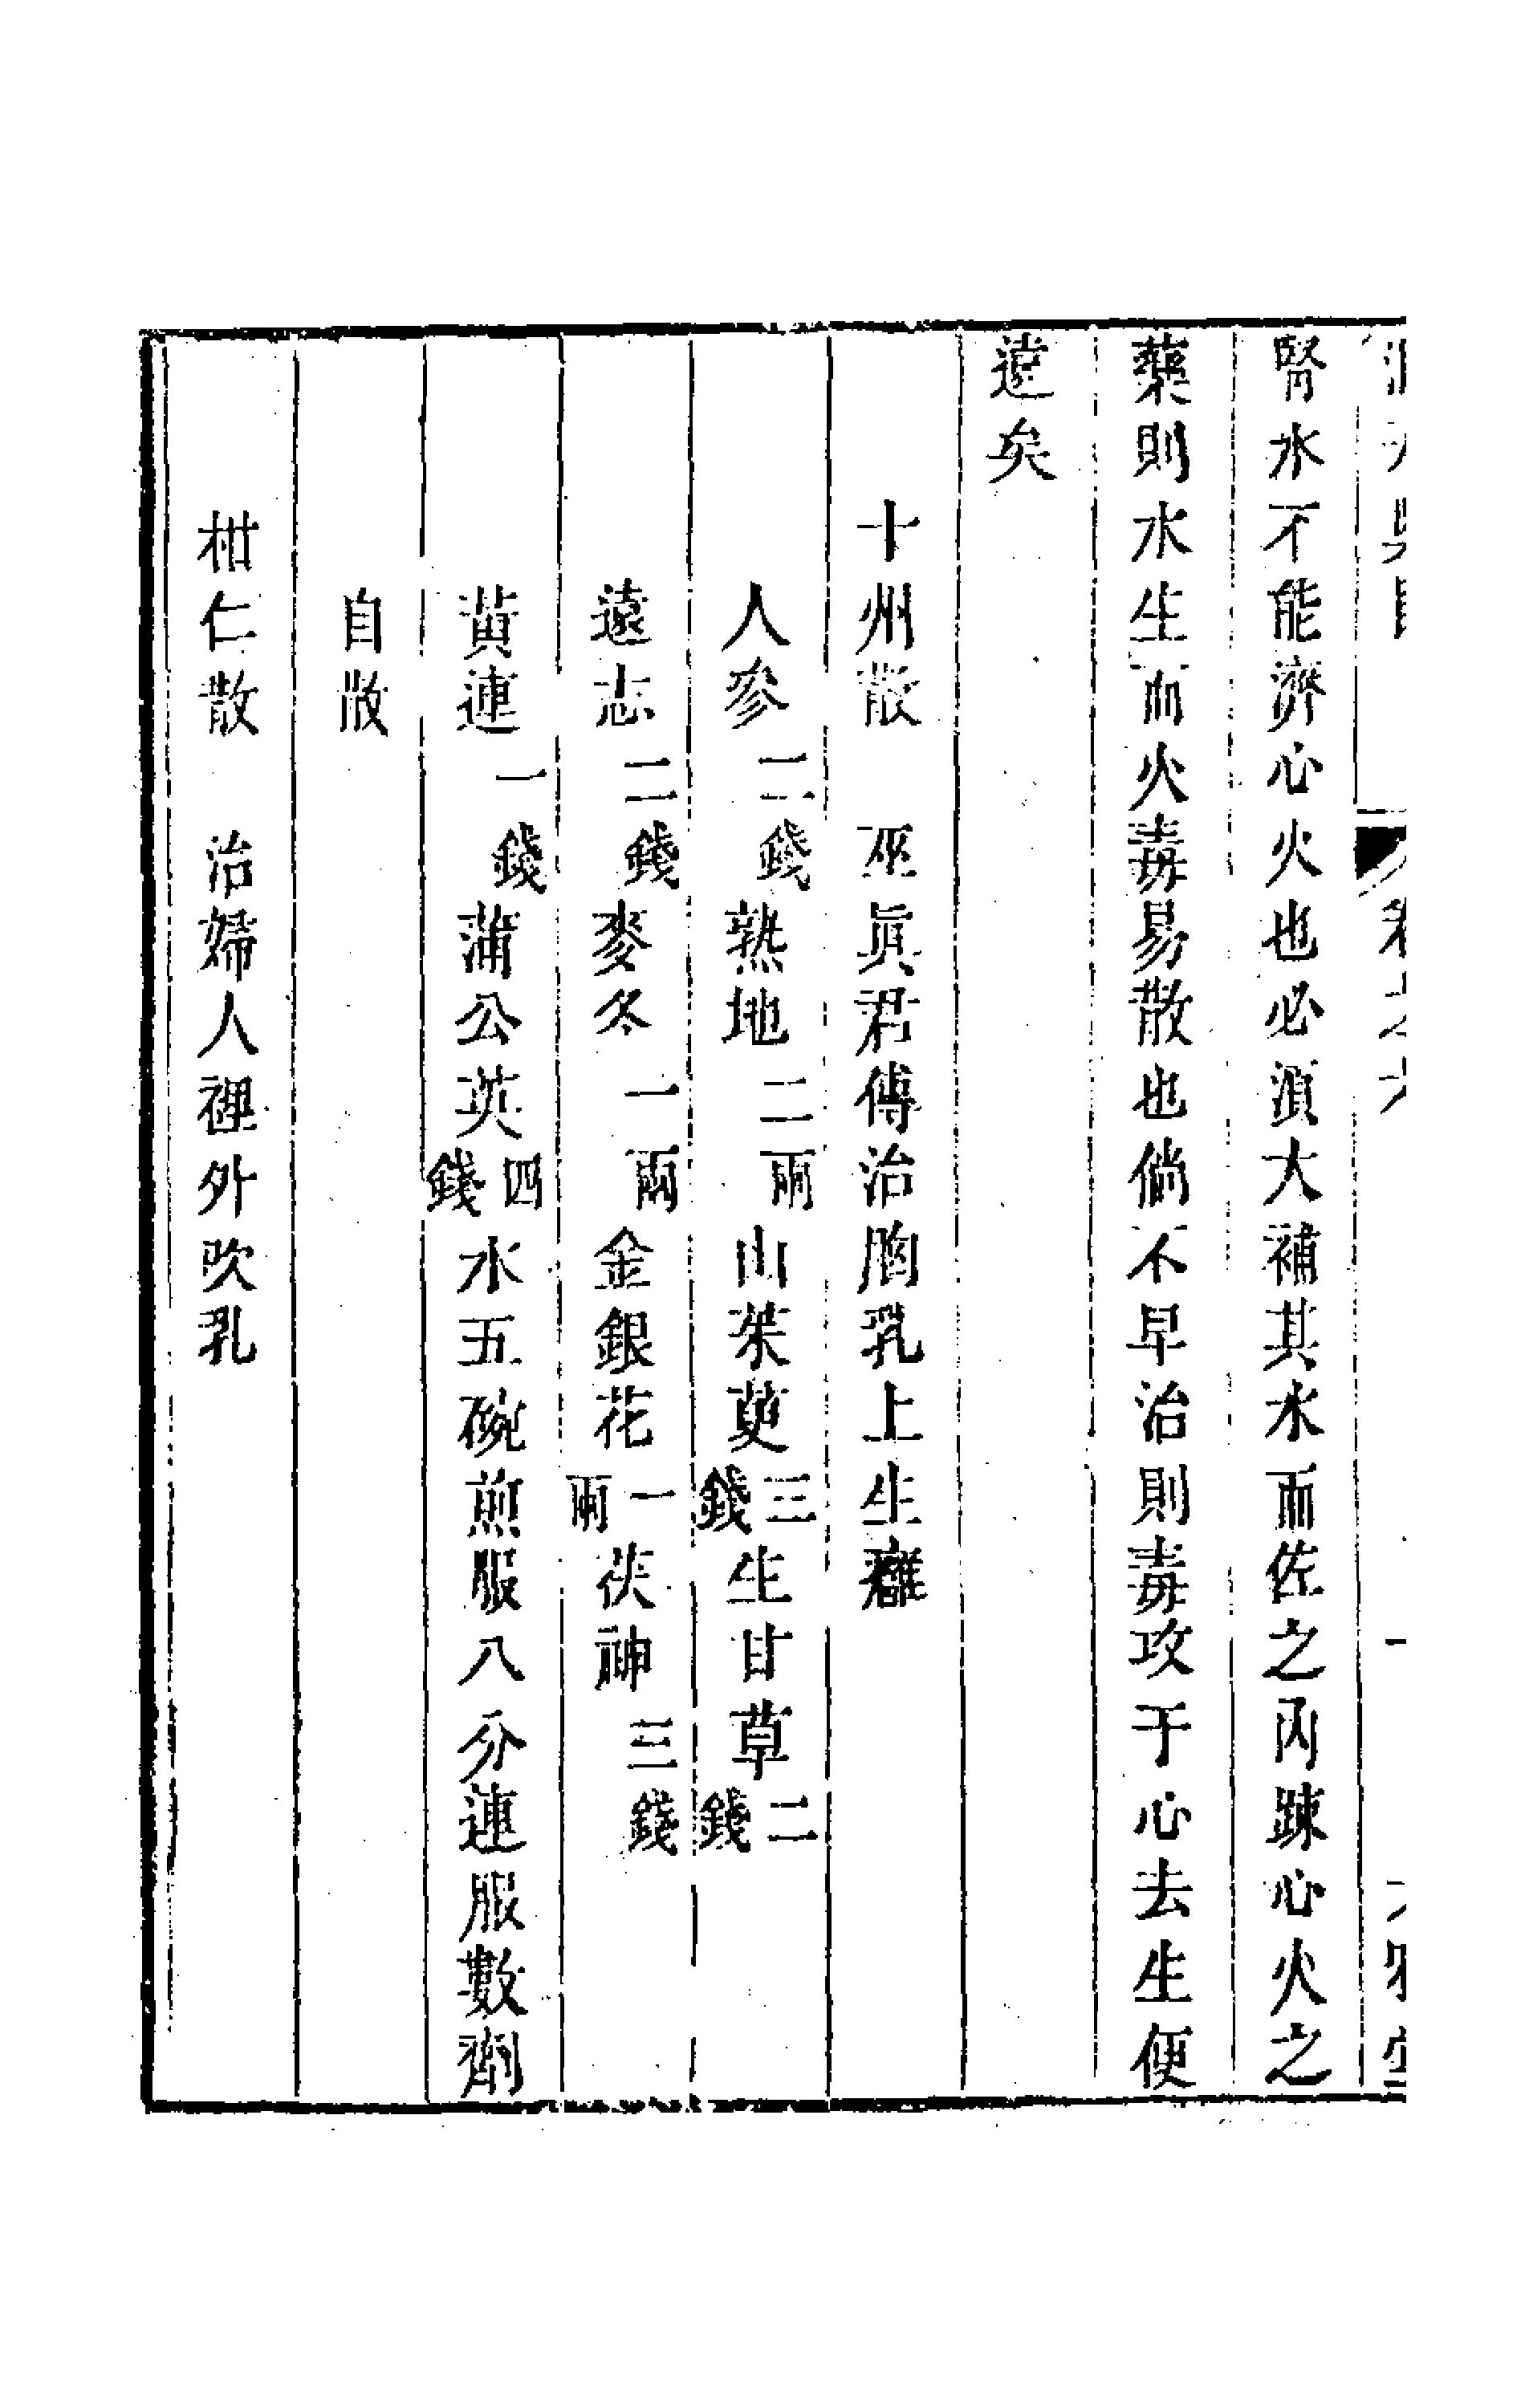 腎水不能濟心火也必須大補其水而佐之內踈心火之
藥則水生而火毒易散也倘不早治則毒攻于心去生便
遠矣
十州散　巫眞君傳治胸乳上生癰
人參二錢熟地二兩山茱萸三錢生甘草二錢
遠志二錢麥冬一兩金銀花一兩茯神三錢
黃連一錢蒲公英四錢水五碗煎服八分連服數劑
自散
柑仁散　治婦人裡外吹乳